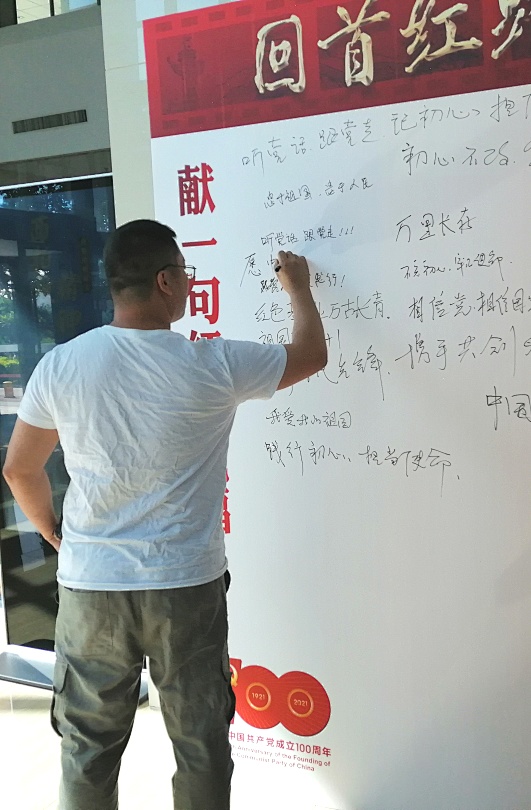 回首红
献一句
听党话 跟党走 记初心、担
初心不改
忠于祖国,忠于人民
听党话 跟党走!!!
万里长春
愿
红色 万古长青. 相信党 相信
祖国
先锋. 携手共创
我爱我的祖国
中国
践行初心、担当使命.
1921
2021
100
中国共产党成立100周年
Anniversary of the Founding of
Communist Party of China